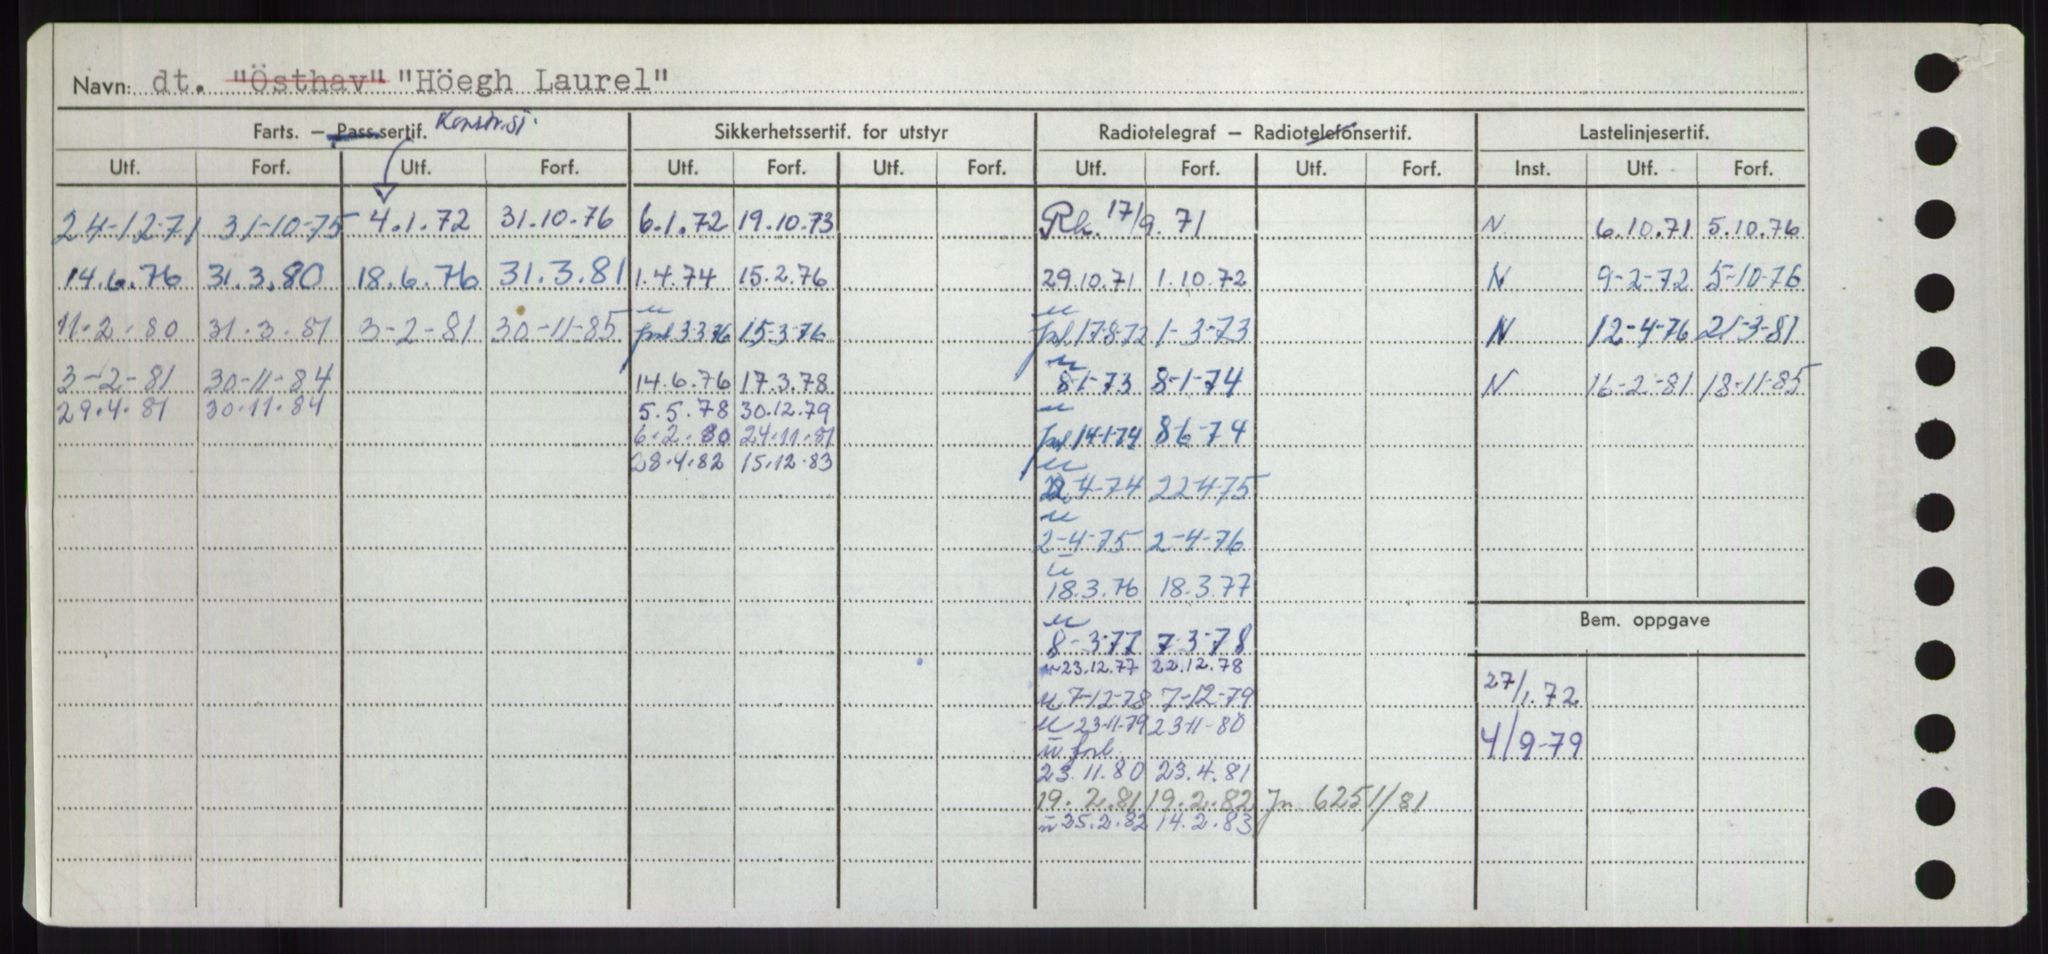 Navn: dt. "Östhav" "Höegh Laurel"
Farts. – Pass.sertif. Konstr.s. Sikkerhetssertif. for utstyr Radiotelegraf – Radiotelefonsertif. Lastelinjesertif.
Utf. Forf. Utf. Forf. Utf. Forf. Utf. Forf. Utf. Forf. Utf. Forf. Inst. Utf. Forf.
24-12-71 31-10-75 4.1.72 31.10.76 6.1.72 19.10.73 Rk. 17/9.71 N 6.10.71 5.10.76
14.6.76 31.3.80 18.6.76 31.3.81 1.4.74 15.2.76 29.10.71 1.10.72 N 9-2-72 5-10-76
11-2-80 31-3-81 3-2-81 30-11-85 u forl 3-3-76 15-3-76 u forl 17-8-72 1-3-73 N 12-4-76 21-3-81
3-2-81 30-11-84 14.6.76 17.3.78 u 8-1-73 8-1-74 N 16-2-81 18-11-85
29.4.81 30.11.84 5.5.78 30.12.79
6.2.80 24.11.81 u forl 14-1-74 8-6-74
28.4.82 15.12.83
u 22-4-74 22-4-75
u 2-4-75 2-4-76
u 18.3.76 18.3.77
Bem. oppgave
u 8-3-77 7-3-78
u 23.12.77 22.12.78
u 7-12-78 7-12-79 27/1.72
u 23-11-79 23-11-80
u forl. 4/9-79
23.11.80 23.4.81
19.2.81 19.2.82 Jn 6251/81
u 25.2.82 14.2.83